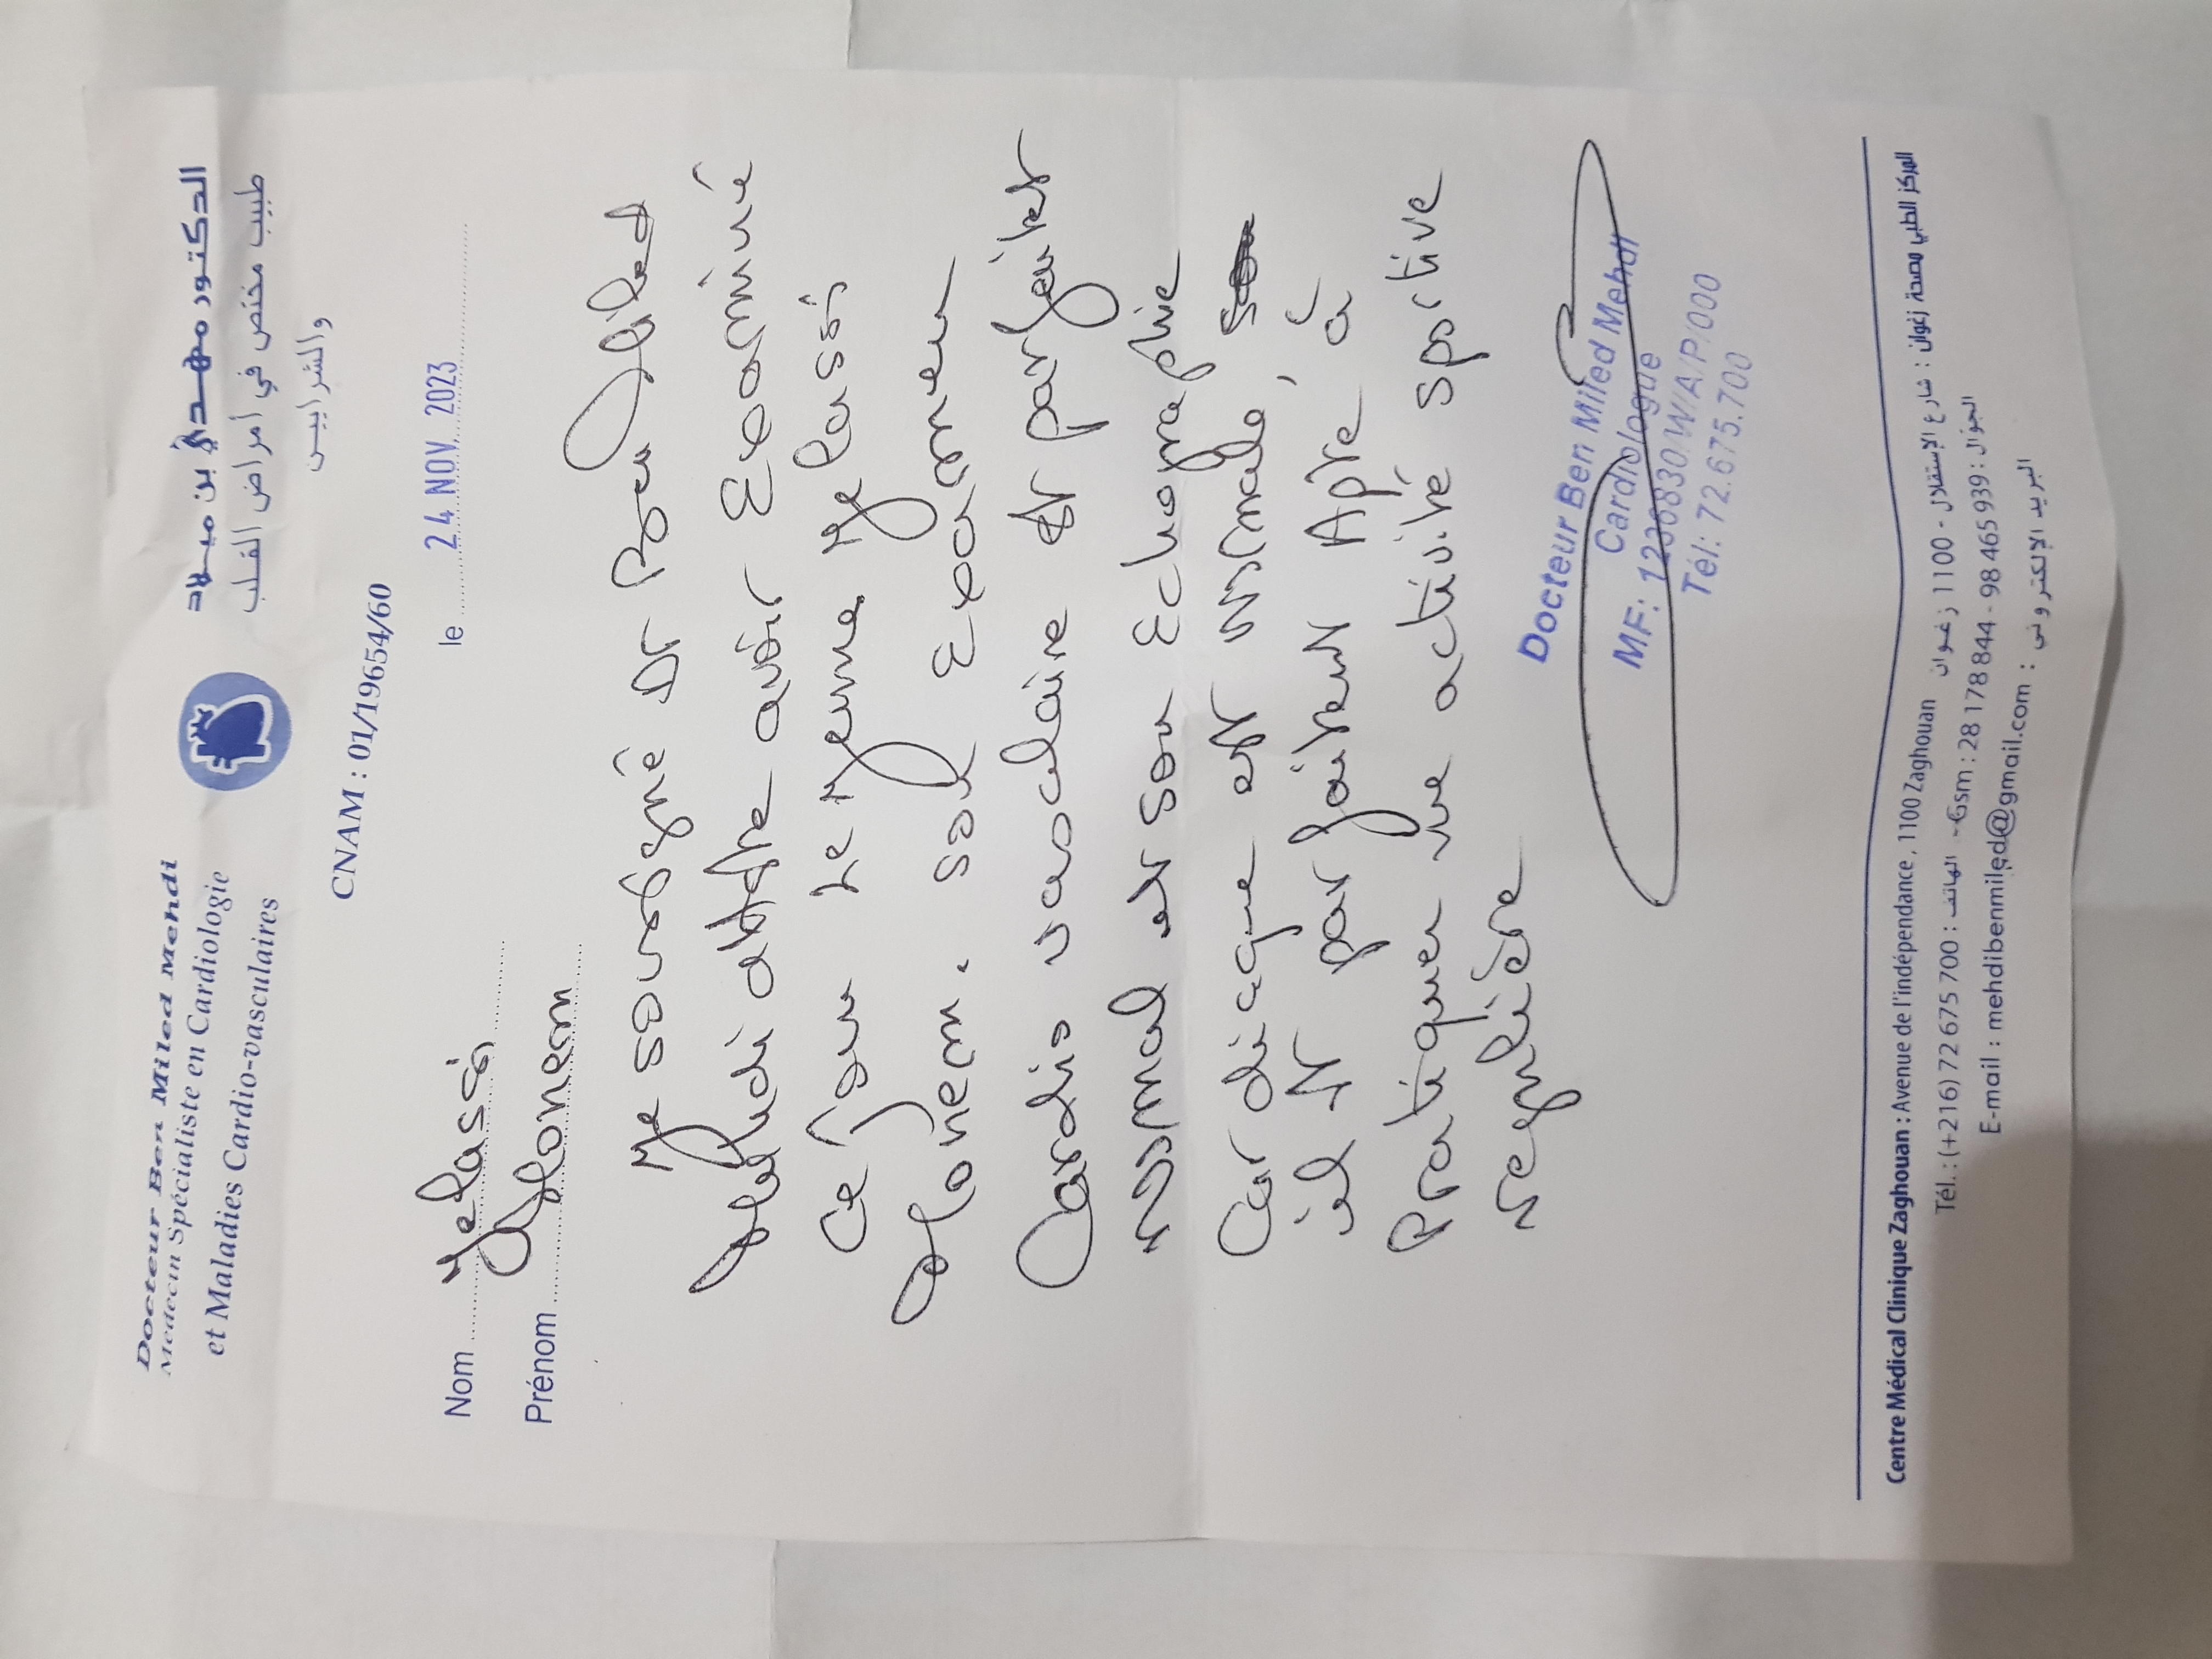 Docteur Ben Miled Mehdi
Médecin Spécialiste en Cardiologie
et Maladies Cardio-vasculaires
الدكتور مهدي بن ميلاد
طبيب مختص في أمراض القلب
والشرايين
CNAM : 01/19654/60
Nom Jelassi
le 24 NOV. 2023
Prénom Ghonem
Je soussigné Dr Ben Miled
Mehdi atteste avoir Examiné
Ce jour le Jeune Jelassi
Ghonem. sol Examen
Cardio vasclaire est parfaitet
normal et son Echographie
Cardiaque est normale,
il est parfaitent Apte à
Pratiquer une activité sportive
regulière
Docteur Ben Miled Mehdi
Cardiologue
MF: 1236830/W/A/P/000
Tél: 72.675.700
Centre Médical Clinique Zaghouan : Avenue de l'indépendance, 1100 Zaghouan المركز الطبي مصحة زغوان : شارع الإستقلال - 1100 زغوان
Tél. : (+216) 72 675 700 : الهاتف - Gsm : 28 178 844 - 98 465 939 : الجوّال
E-mail : mehdibenmiled@gmail.com : البريد الإلكتروني